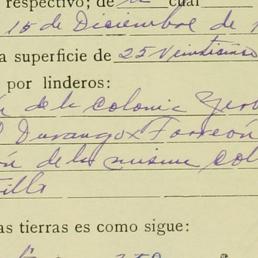 respectivo; de la cual
15 de Diciembre de
a superficie de 25 Veinticinco
por linderos:
de la colonia
Durango x Torreón
ón de la misma col
illa
as tierras es como sigue: